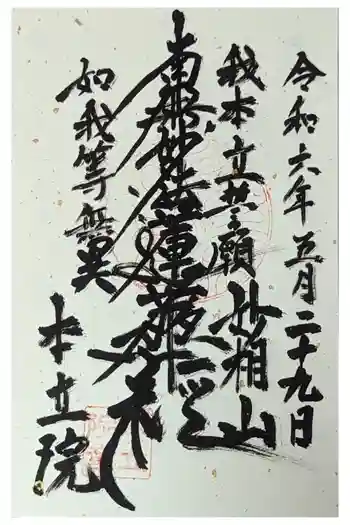 令和六年五月二十九日
我本立誓願 妙相山
南無妙法蓮華経
如我等無異
本立院